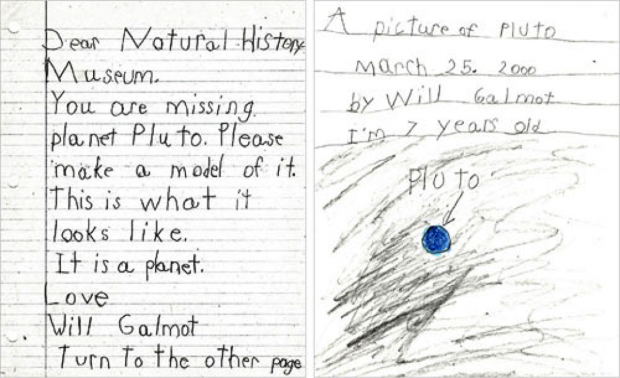 Dear Natural History
Museum.
You are missing
planet Pluto. Please
make a model of it.
This is what it
looks like.
It is a planet.
Love
Will Galmot
Turn to the other page
A picture of Pluto
March 25. 2000
by Will Galmot
I'm 7 years old
Pluto